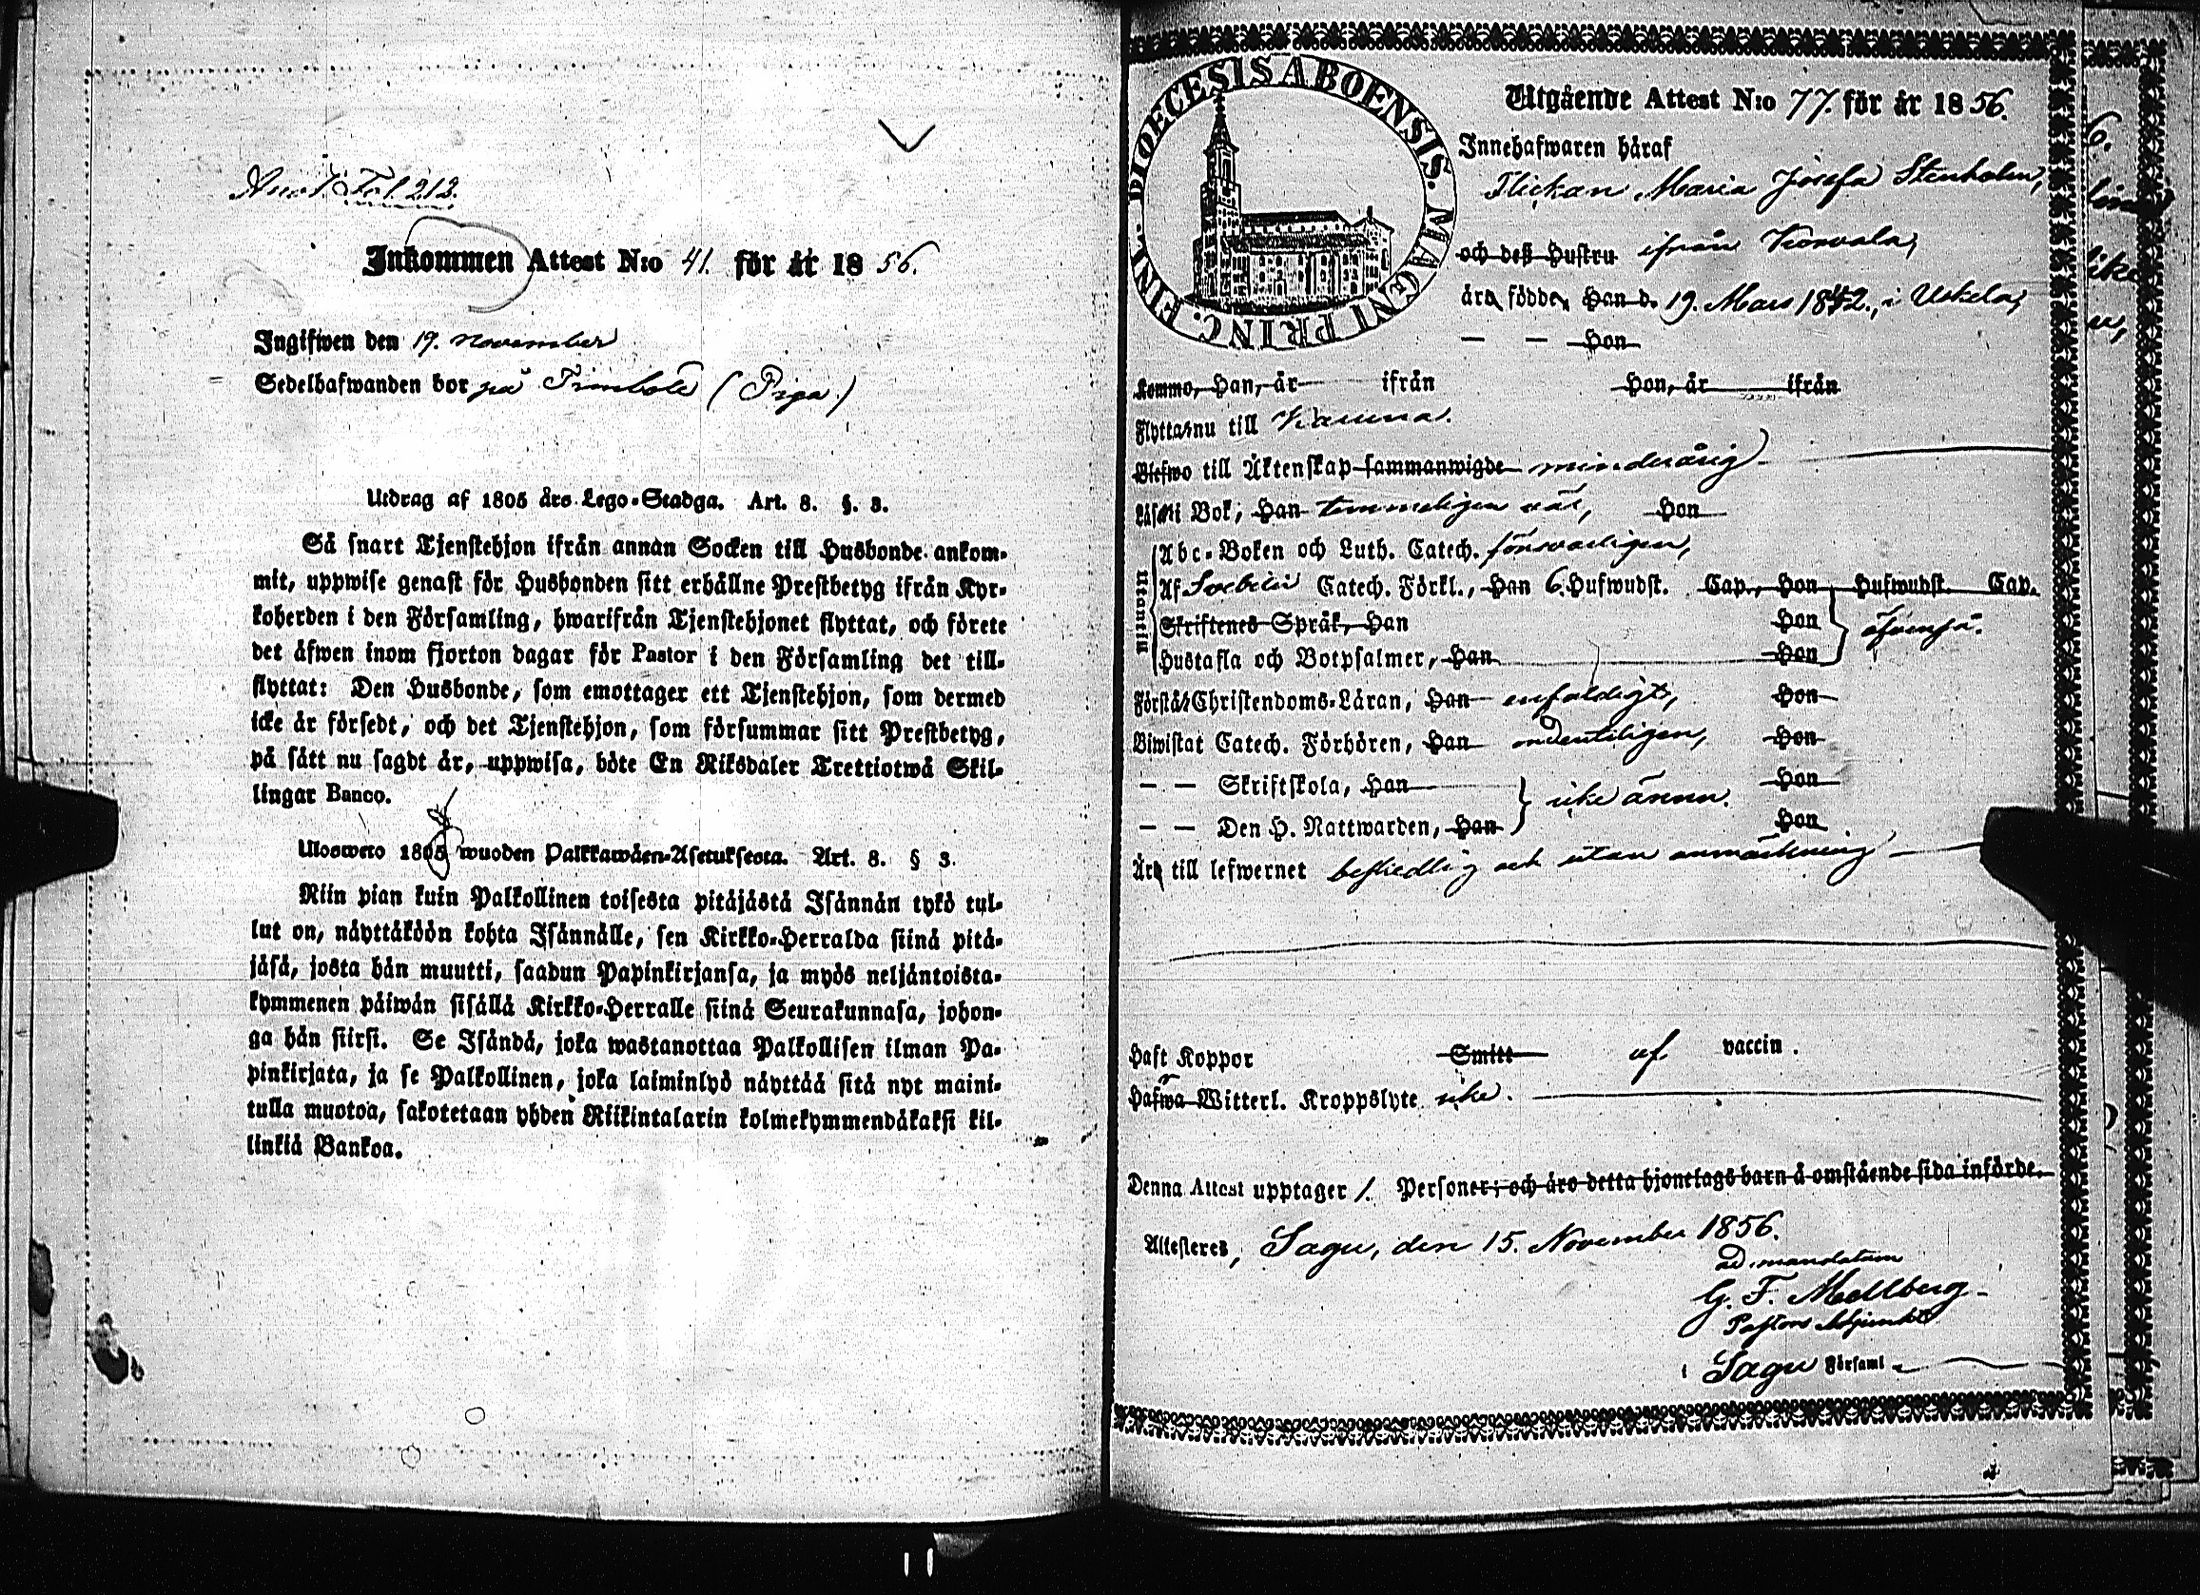 Anot. Fol. 212.
Inkommen Attest N:o 41. för år 1856.
Ingifwen den 19. November
Sedelhafwanden bor på Frimbole (Piga)
Utdrag af 1805 års Lego-Stadga. Art. 8. §. 3.
Så snart Tjenstehjon ifrån annan Socken till Husbonde ankom-
mit, uppwise genast för Husbonden sitt erhållne Prestbetyg ifrån Kyr-
koherden i den Församling, hwarifrån Tjenstehjonet flyttat, och förete
det äfwen inom fjorton dagar för Pastor i den Församling det till-
flyttat: Den Husbonde, som emottager ett Tjenstehjon, som dermed
icke är försedt, och det Tjenstehjon, som försummar sitt Prestbetyg,
på sätt nu sagdt är, uppwisa, böte En Riksdaler Trettiotwå Skil-
lingar Banco.
Ulosweto 1805 wuoden Palkkawäen-Asetuksesta. Art. 8. § 3.
Niin pian kuin Palkollinen toisesta pitäjästä Isännän tykö tul-
lut on, näyttäköön kohta Isännälle, sen Kirkko-Herralda siinä pitä-
jäsä, josta hän muutti, saadun Papinkirjansa, ja myös neljäntoista-
kymmenen päiwän sisällä Kirkko-Herralle siinä Seurakunnasa, johon-
ga hän siirsi. Se Isändä, joka wastanottaa Palkollisen ilman Pa-
pinkirjata, ja se Palkollinen, joka laiminlyö näyttää sitä nyt maini-
tulla muotoa, sakotetaan yhden Riikintalarin kolmekymmendäkaksi kil-
linkiä Bankoa.
DIOECESIS ABOENSIS. MAGNI PRINC. FINL.
Utgående Attest N:o 77. för år 1856.
Innehafwaren häraf
Flickan Maria Josefa Stenholm,
och deß Hustru ifrån Korvala,
äro födde, Han d. 19. Mars 1842., i Uskela,
— — Hon
Komne, Han, år ifrån Hon, år ifrån
Flytta nu till Kauna.
Blefwo till Äktenskap sammanwigde minderårig
Läser i Bok, Han temmeligen väl, Hon
Utantill
Abc-Boken och Luth. Catech. försvarligen,
Af Svebilii Catech. Förkl., Han 6. Hufwudst. Cap., Hon Hufwudst. Cap.
Skriftenes Språk, Han Hon
Hustafla och Botpsalmer, Han Hon äfvenså.
Förstår Christendoms-Läran, Han enfaldigt, Hon
Biwistat Catech. Förhören, Han ordentligen, Hon
— — Skriftskola, Han Hon
icke ännu.
— — Den H. Nattwarden, Han Hon
Äro till lefwernet beskedlig och utan anmärkning
Haft Koppor Smitt af vaccin.
Hafwa Witterl. Kroppslyte icke.
Denna Attest upptager 1. Personer; och äro detta hjonelags barn å omstående sida införde.
Attesteres, Sagu, den 15. November 1856.
ad mandatum
G. F. Mellberg
Pastors Adjunkt
i Sagu Församl